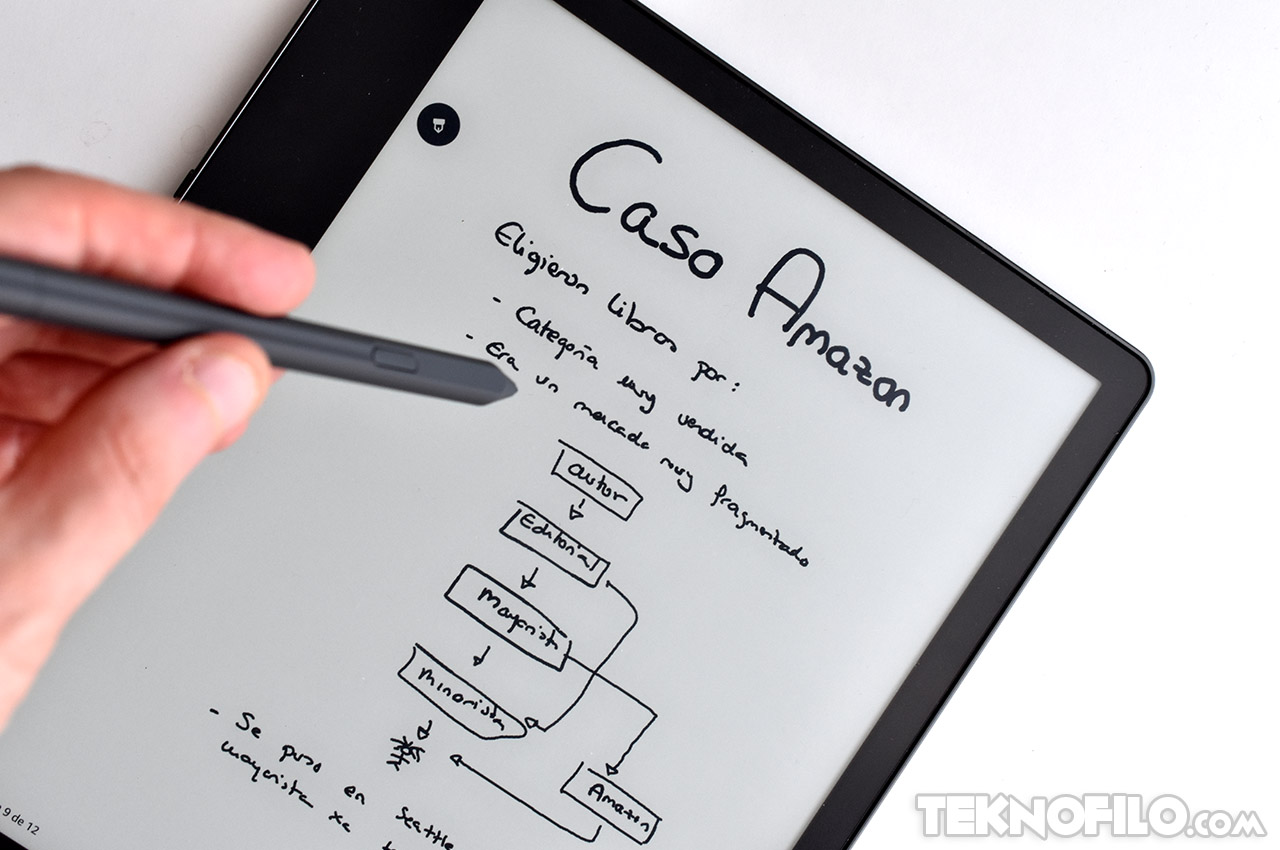 Caso Amazon
Eligieron libros por:
- Categoría muy vendida
- Era un mercado muy fragmentado
autor
Editorial
Mayorista
Minorista
Amazon
- Se puso en Seattle
mayorista xq
9 de 12
TEKNOFILO.COM